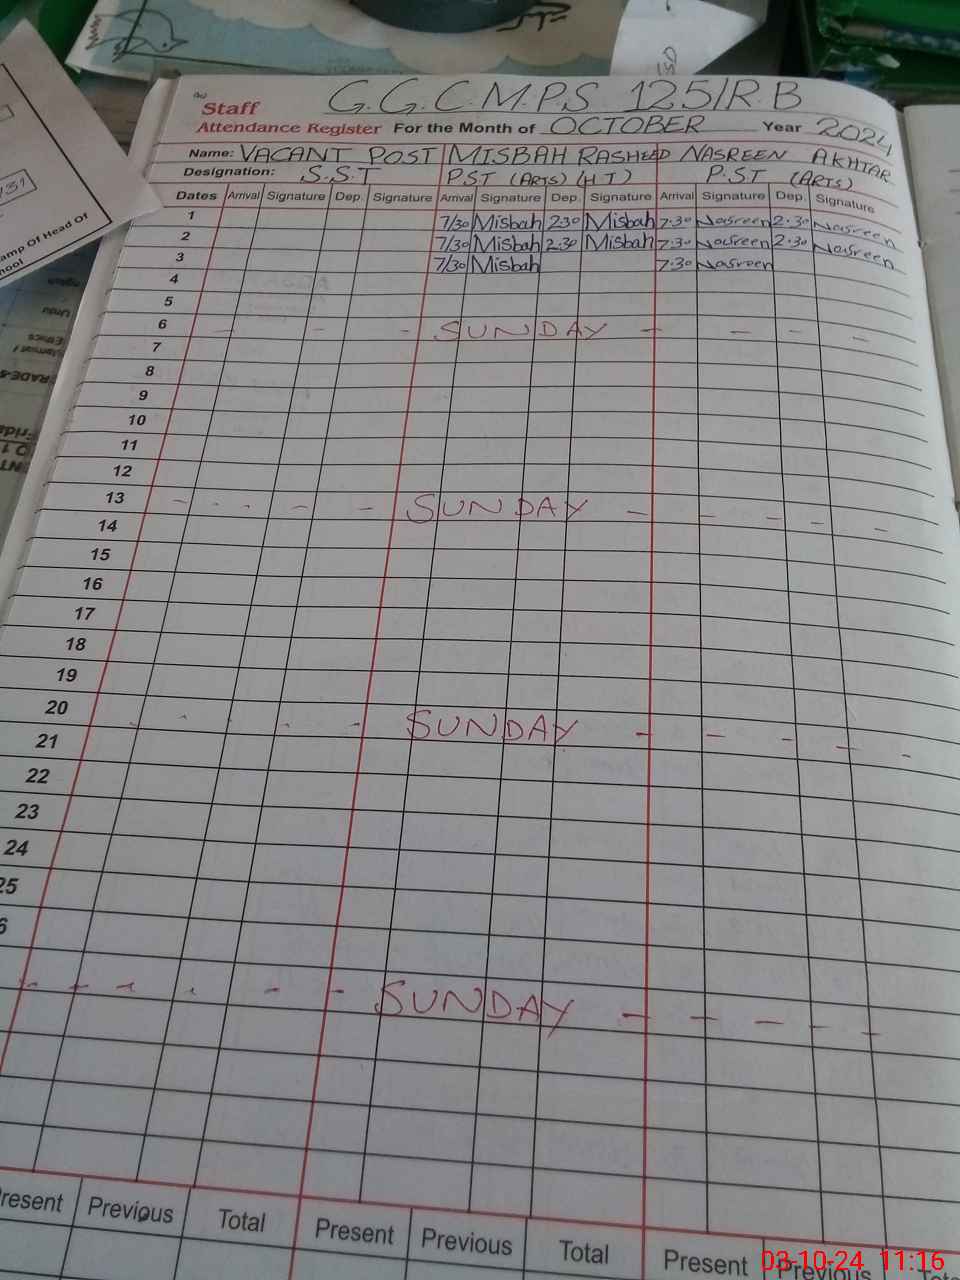 G.G.C.M.P.S 125/R.B
Staff
Attendance Register For the Month of OCTOBER Year 2024
Name: VACANT POST MISBAH RASHEED NASREEN AKHTAR
Designation: S.S.T PST (ARTS) (H T) P.S.T (ARTS)
Dates Arrival Signature Dep. Signature Arrival Signature Dep. Signature Arrival Signature Dep. Signature
1 7/30 Misbah 2:30 Misbah 7:30 Nasreen 2:30 Nasreen
2 7/30 Misbah 2:30 Misbah 7:30 Nasreen 2:30 Nasreen
3 7/30 Misbah 7:30 Nasreen
4
5
6 SUNDAY
7
8
9
10
11
12
13 SUNDAY
14
15
16
17
18
19
20 SUNDAY
21
22
23
24
25
6
SUNDAY
resent Previous Total Present Previous Total Present Previous
03-10-24 11:16
131
amp Of Head Of
hool
Urdu
Ethics
RADE-5